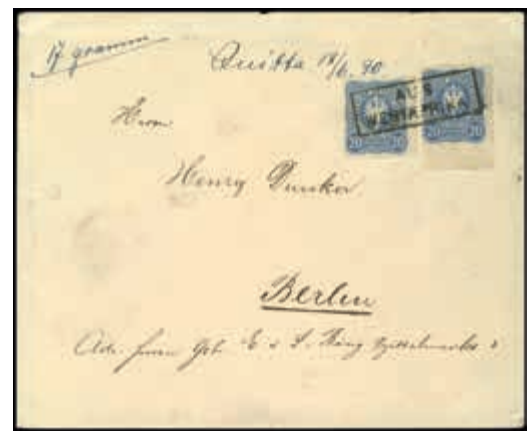 17 gramm
Quitta 18/6. 90
AUS
WESTAFRIKA
20 20 20 20
Herrn
Henry Dunker.
Berlin
Adr. Herren Gebr.